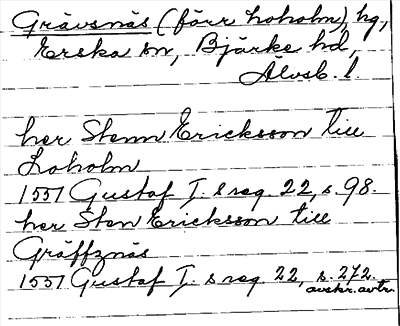 Grävsnäs (förr Loholm), hg,
Erska sn, Bjärke hd,
Älvsb. l.
her Stenn Ericksson till
Loholm
1551 Gustaf I.s reg. 22, s. 98.
her Sten Ericksson till
Gräffznäs
1551 Gustaf I.s reg. 22, s. 272.
avskr. avtr.